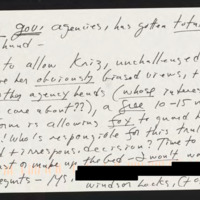 gov. agencies, has gotten tota
hand -
to allow Krig, unchallenged
her obviously biased views, t
other agency heads (whose interes
care about??), a free 10-15 m
is allowing fox to guard
! Who's responsible for this tru
+ irrespons. decision? Time to
out of make up the bed - I won't wa
- Ms.
Windsor Locks, (to